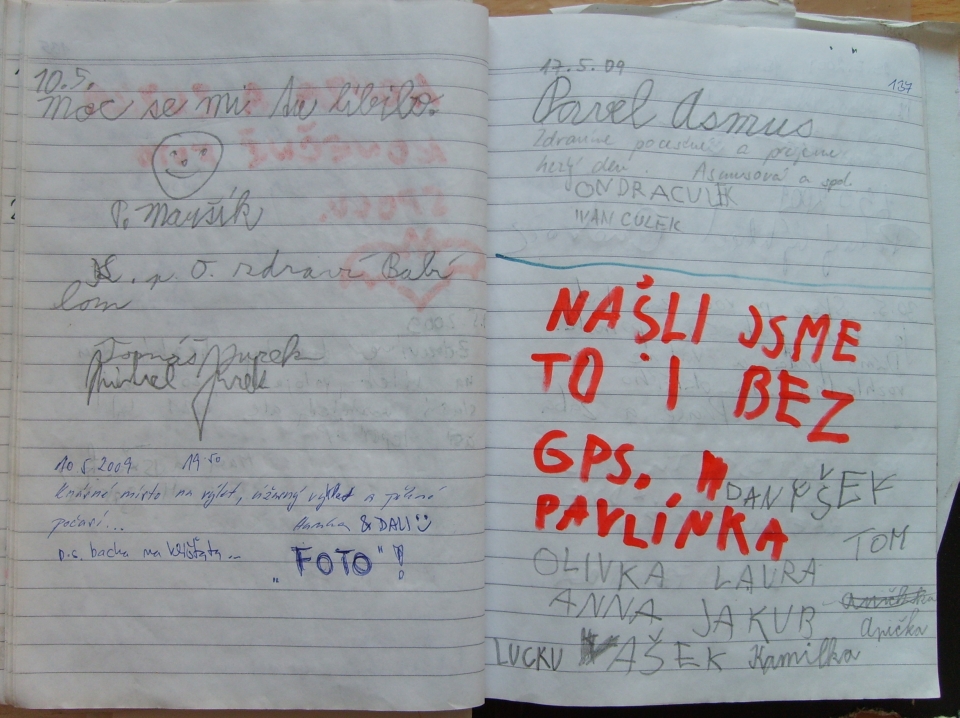 10.5.
Moc se mi tu líbilo.
P. Maršík
. p. O. zdraví Babí
lom
Tomáš Jurek
Michal Jurek
10 5 2009 19 50
Krásné místo na výlet, úžasný výhled a pěkné
počasí... Hanka & DALI
p.s. bacha na klíšťata...
"FOTO"!
137
17.5.09
Pavel Asmus
Zdravíme pocestné a přejeme
hezý den. Asmusová a spol.
ONDRACULIK
IVAN CÚLEK
NAŠLI JSME
TO I BEZ
GPS.
DANYŠEK
PAVLÍNKA
TOM
OLIVKA LAURA
ANNA JAKUB
Anička
LUCKU VAŠEK Kamilka